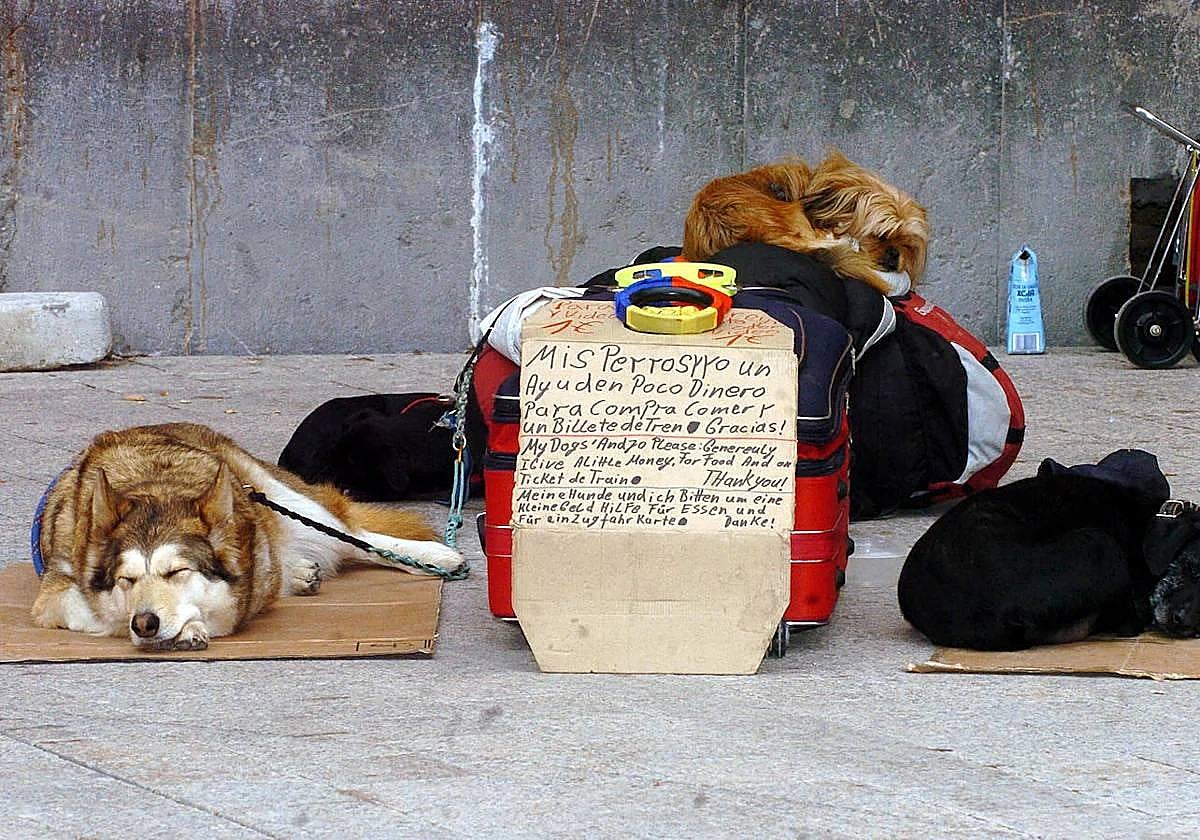 1€
1€
Mis Perros y yo un
Ayuden Poco Dinero
Para Compra Comer y
un Billete de Tren. Gracias!
My Dogs' And Jo Please: Genereuly
I Give A Little Money, For Food And on
Ticket de Train. Thank you!
Meine Hunde und ich Bitten um eine
kleine Geld Hilfe Für Essen und
Für ein Zugfahr Karte. Danke!